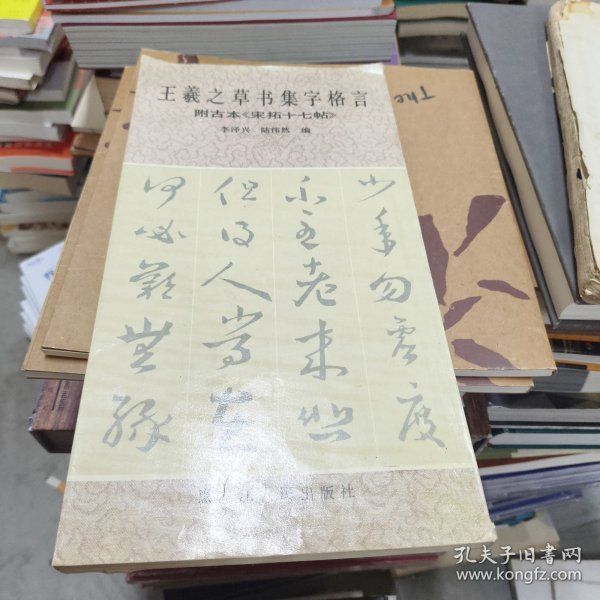 王羲之草书集字格言
附古本《宋拓十七帖》
李泽兴 陆伟然 编
少年勿虚度
不至老来
但
人常
何必
无缘
出版社
The
孔夫子旧书网
www.kongfz.com